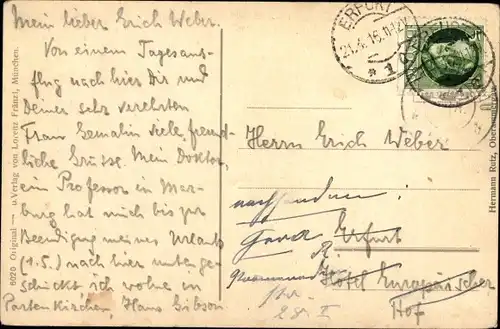 Mein lieber Erich Weber.
Von einem Tagesaus-
flug nach hier Dir und
Deiner sehr verehrten
Frau Gemalin viele freund-
liche Grüsse. Mein Doktor,
ein Professor in Mar-
burg hat mich bis zur
Beendigung meines Urlaubs
(1.5.) nach hier unten ge-
schickt ich wohne in
Partenkirchen, Hans Gibson.
6020 Original — u. Verlag von Lorenz Fränzl, München.
ERFURT
21.4.15.11-12V.
* 1
Herrn Erich Weber
nachsenden:
Gera
Erfurt
R.
Hotel Europäischer
Hof
28 I
Hermann Rutz,